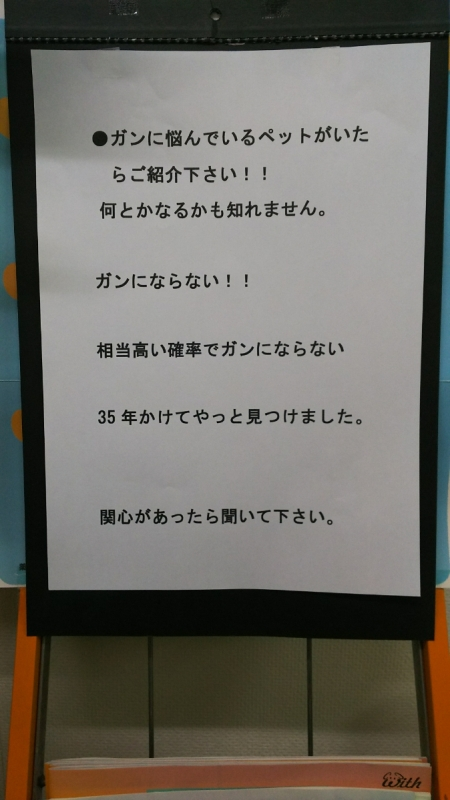 ●ガンに悩んでいるペットがいた
らご紹介下さい！！
何とかなるかも知れません。
ガンにならない！！
相当高い確率でガンにならない
35年かけてやっと見つけました。
関心があったら聞いて下さい。
With